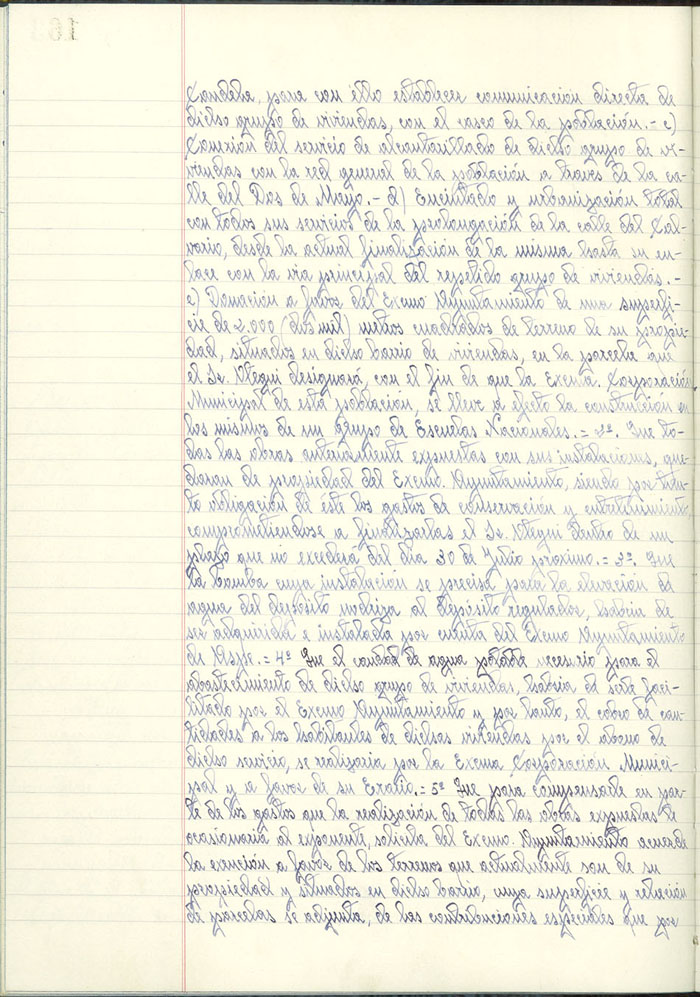 Candela, para con ello establecer comunicación directa de
dicho grupo de viviendas, con el casco de la población.- c)
Conexión del servicio de alcantarillado de dicho grupo de vi-
viendas con la red general de la población a traves de la ca-
lle del Dos de Mayo.- d) Encintado y urbanización total
con todos sus servicios de la prolongación de la calle del Cal-
vario, desde la actual finalización de la misma hasta su en-
lace con la via principal del repetido grupo de viviendas.-
e) Donación a favor del Excmo Ayuntamiento de una superfi-
cie de 2.000 (dos mil) metros cuadrados de terreno de su propie-
dad, situados en dicho barrio de viviendas, en la parcela que
el Sr. Otegui designará, con el fin de que la Excma. Corporación
Municipal de esta población, se lleve a efecto la construcción en
los mismos de un grupo de Escuelas Nacionales.= 2º. Que to-
das las obras anteriormente expuestas con sus instalaciones, que-
daran de propiedad del Excmo. Ayuntamiento, siendo por tan-
to obligación de éste los gastos de conservación y entretenimiento,
comprometiendose a finalizarlas el Sr. Otegui dentro de un
plazo que no excederá del dia 30 de Julio proximo.= 3º. Que
la bomba cuya instalación se precisa para la elevación de
agua del depósito nodriza al depósito regulador, habria de
ser adquirida e instalada por cuenta del Excmo Ayuntamiento
de Aspe.= 4º Que el caudal de agua potable necesario para el
abastecimiento de dicho grupo de viviendas, habria de serle faci-
litado por el Excmo Ayuntamiento y por tanto, el cobro de can-
tidades a los habitantes de dichas viviendas por el abono de
dicho servicio, se realizaria por la Excma Corporación Munici-
pal y a favor de su Erario.= 5º Que para compensarle en par-
te de los gastos que la realización de todas las obras expuestas le
ocasionaria al exponente, solicita del Excmo. Ayuntamiento acuerde
la exención a favor de los terrenos que actualmente son de su
propiedad y situados en dicho barrio, cuya superficie y relación
de parcelas se adjunta, de las contribuciones especiales que por